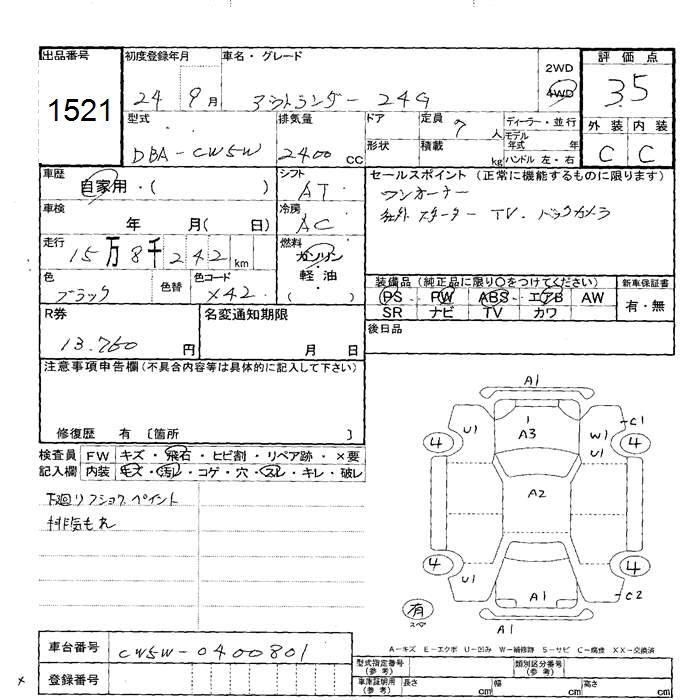 出品番号 初度登録年月 車名・グレード 2WD 4WD 評価点
1521 24 9月 アウトランダー 24G 3.5
型式 排気量 ドア 定員 7人 ディーラー・並行 外装 内装
DBA-CW5W 2400cc 形状 積載 kg モデル年式 年 ハンドル 左・右 C C
車歴 自家用・( ) シフト AT セールスポイント(正常に機能するものに限ります)
ワンオーナー
車検 年 月( 日) 冷房 AC 社外 スターター TV. バックカメラ
走行 15万8千242km 燃料 ガソリン 軽・油 ( )
色 ブラック 色替 色コード X42 装備品(純正品に限り○をつけてください) 新車保証書
PS PW ABS エアB AW 有・無
SR ナビ TV カワ
R券 13.760円 名変通知期限 月 日 後日品
注意事項申告欄(不具合内容等は具体的に記入して下さい)
修復歴 有 〔箇所 〕
検査員記入欄 FW キズ・飛石・ヒビ割・リペア跡・×要
内装 キズ・汚レ・コゲ・穴・スレ・キレ・破レ
下廻リフショク.ペイント
排気もれ
A1
U1 1 A3 W1 U1 C1
4 4
A2
4 4
U1 A1 C2
有 スペ A1
A-キズ E-エクボ U-凹み W-補修跡 S-サビ C-腐蝕 XX-交換済
車台番号 CW5W-0400801
登録番号
型式指定番号(参考) 類別区分番号(参考)
車庫証明用(参考) 長さ cm 幅 cm 高さ cm
×